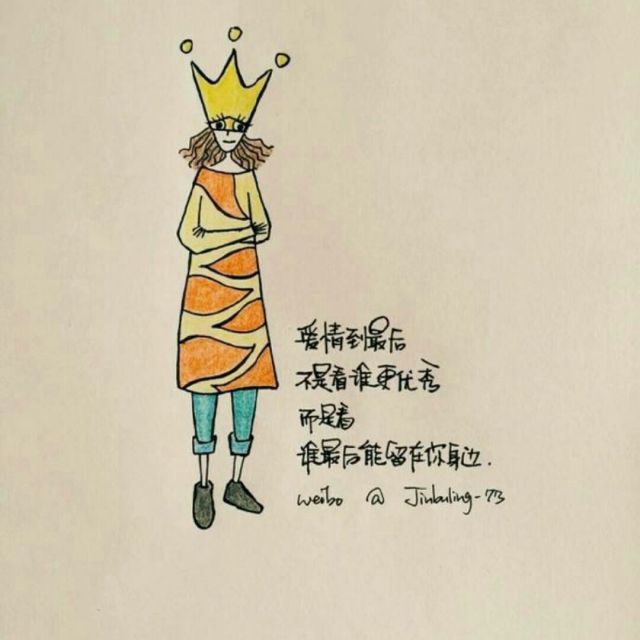 爱情到最后
不是看谁更优秀
而是看
谁最后能留在你身边.
weibo @ Jinbuling-73